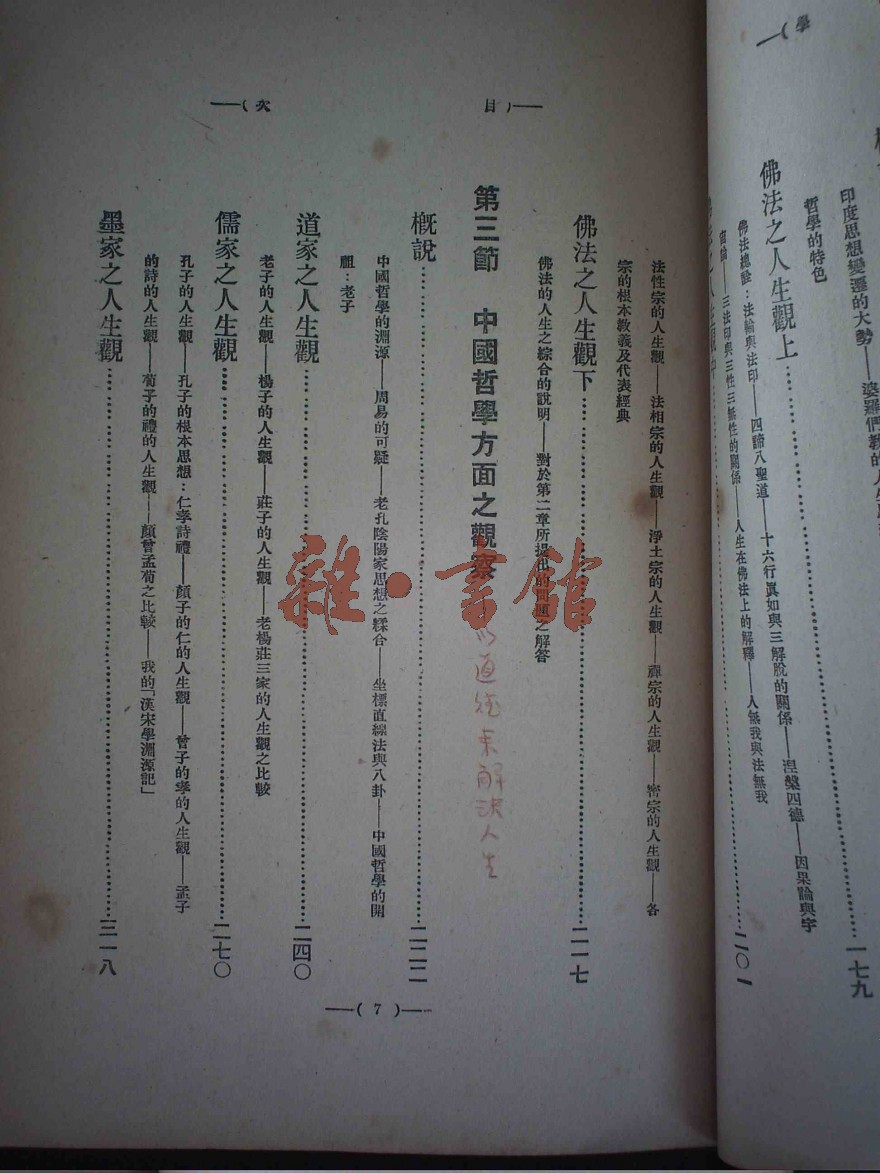 學
印度思想變遷的大勢——婆羅們教的人生
哲學的特色
佛法之人生觀上……一七九
佛法總詮：法輪與法印——四諦八聖道——十六行眞如與三解脫的關係——涅槃四德——因果論與宇
宙論——三法印與三性三無性的關係——人生在佛法上的解釋——人無我與法無我
……二〇一
目 次
法性宗的人生觀——法相宗的人生觀——淨土宗的人生觀——禪宗的人生觀——密宗的人生觀——各
宗的根本教義及代表經典
佛法之人生觀下……二一七
佛法的人生之綜合的說明——對於第二章所提出的問題之解答
第三節 中國哲學方面之觀察
以道德來解決人生
概說……二二二
中國哲學的淵源——周易的可疑——老孔陰陽家思想之糅合——坐標直線法與八卦——中國哲學的開
祖：老子
道家之人生觀……二四〇
老子的人生觀——楊子的人生觀——莊子的人生觀——老楊莊三家的人生觀之比較
儒家之人生觀……二七〇
孔子的人生觀——孔子的根本思想：仁孝詩禮——顏子的仁的人生觀——曾子的孝的人生觀——孟子
的詩的人生觀——荀子的禮的人生觀——顏曾孟荀之比較——我的「漢宋學淵源記」
墨家之人生觀……三一八
——( 7 )——
雜·書館